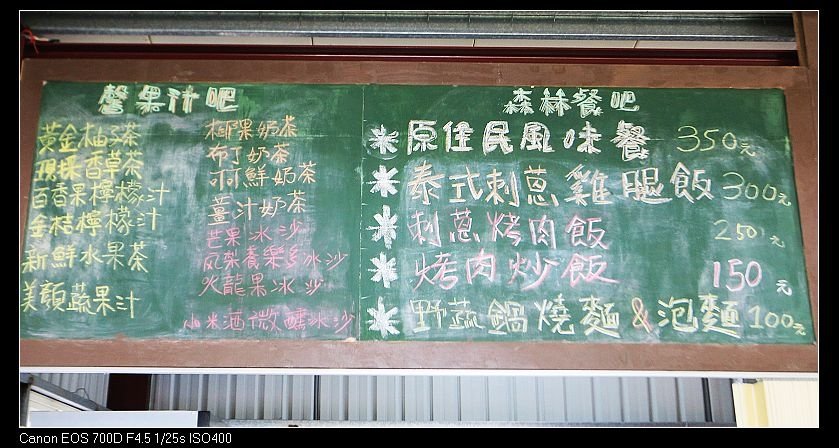 馨果汁吧
黃金柚子茶
現採香草茶
百香果檸檬汁
金桔檸檬汁
新鮮水果茶
美顏蔬果汁
椰果奶茶
布丁奶茶
可可鮮奶茶
薑汁奶茶
芒果冰沙
凤梨養樂多冰沙
火龍果冰沙
小米酒微醺冰沙
森林餐吧
原住民風味餐 350元
泰式刺蔥雞腿飯 300元
刺蔥烤肉飯 250元
烤肉炒飯 150元
野蔬鍋燒麵&泡麵 100元
Canon EOS 700D F4.5 1/25s ISO400